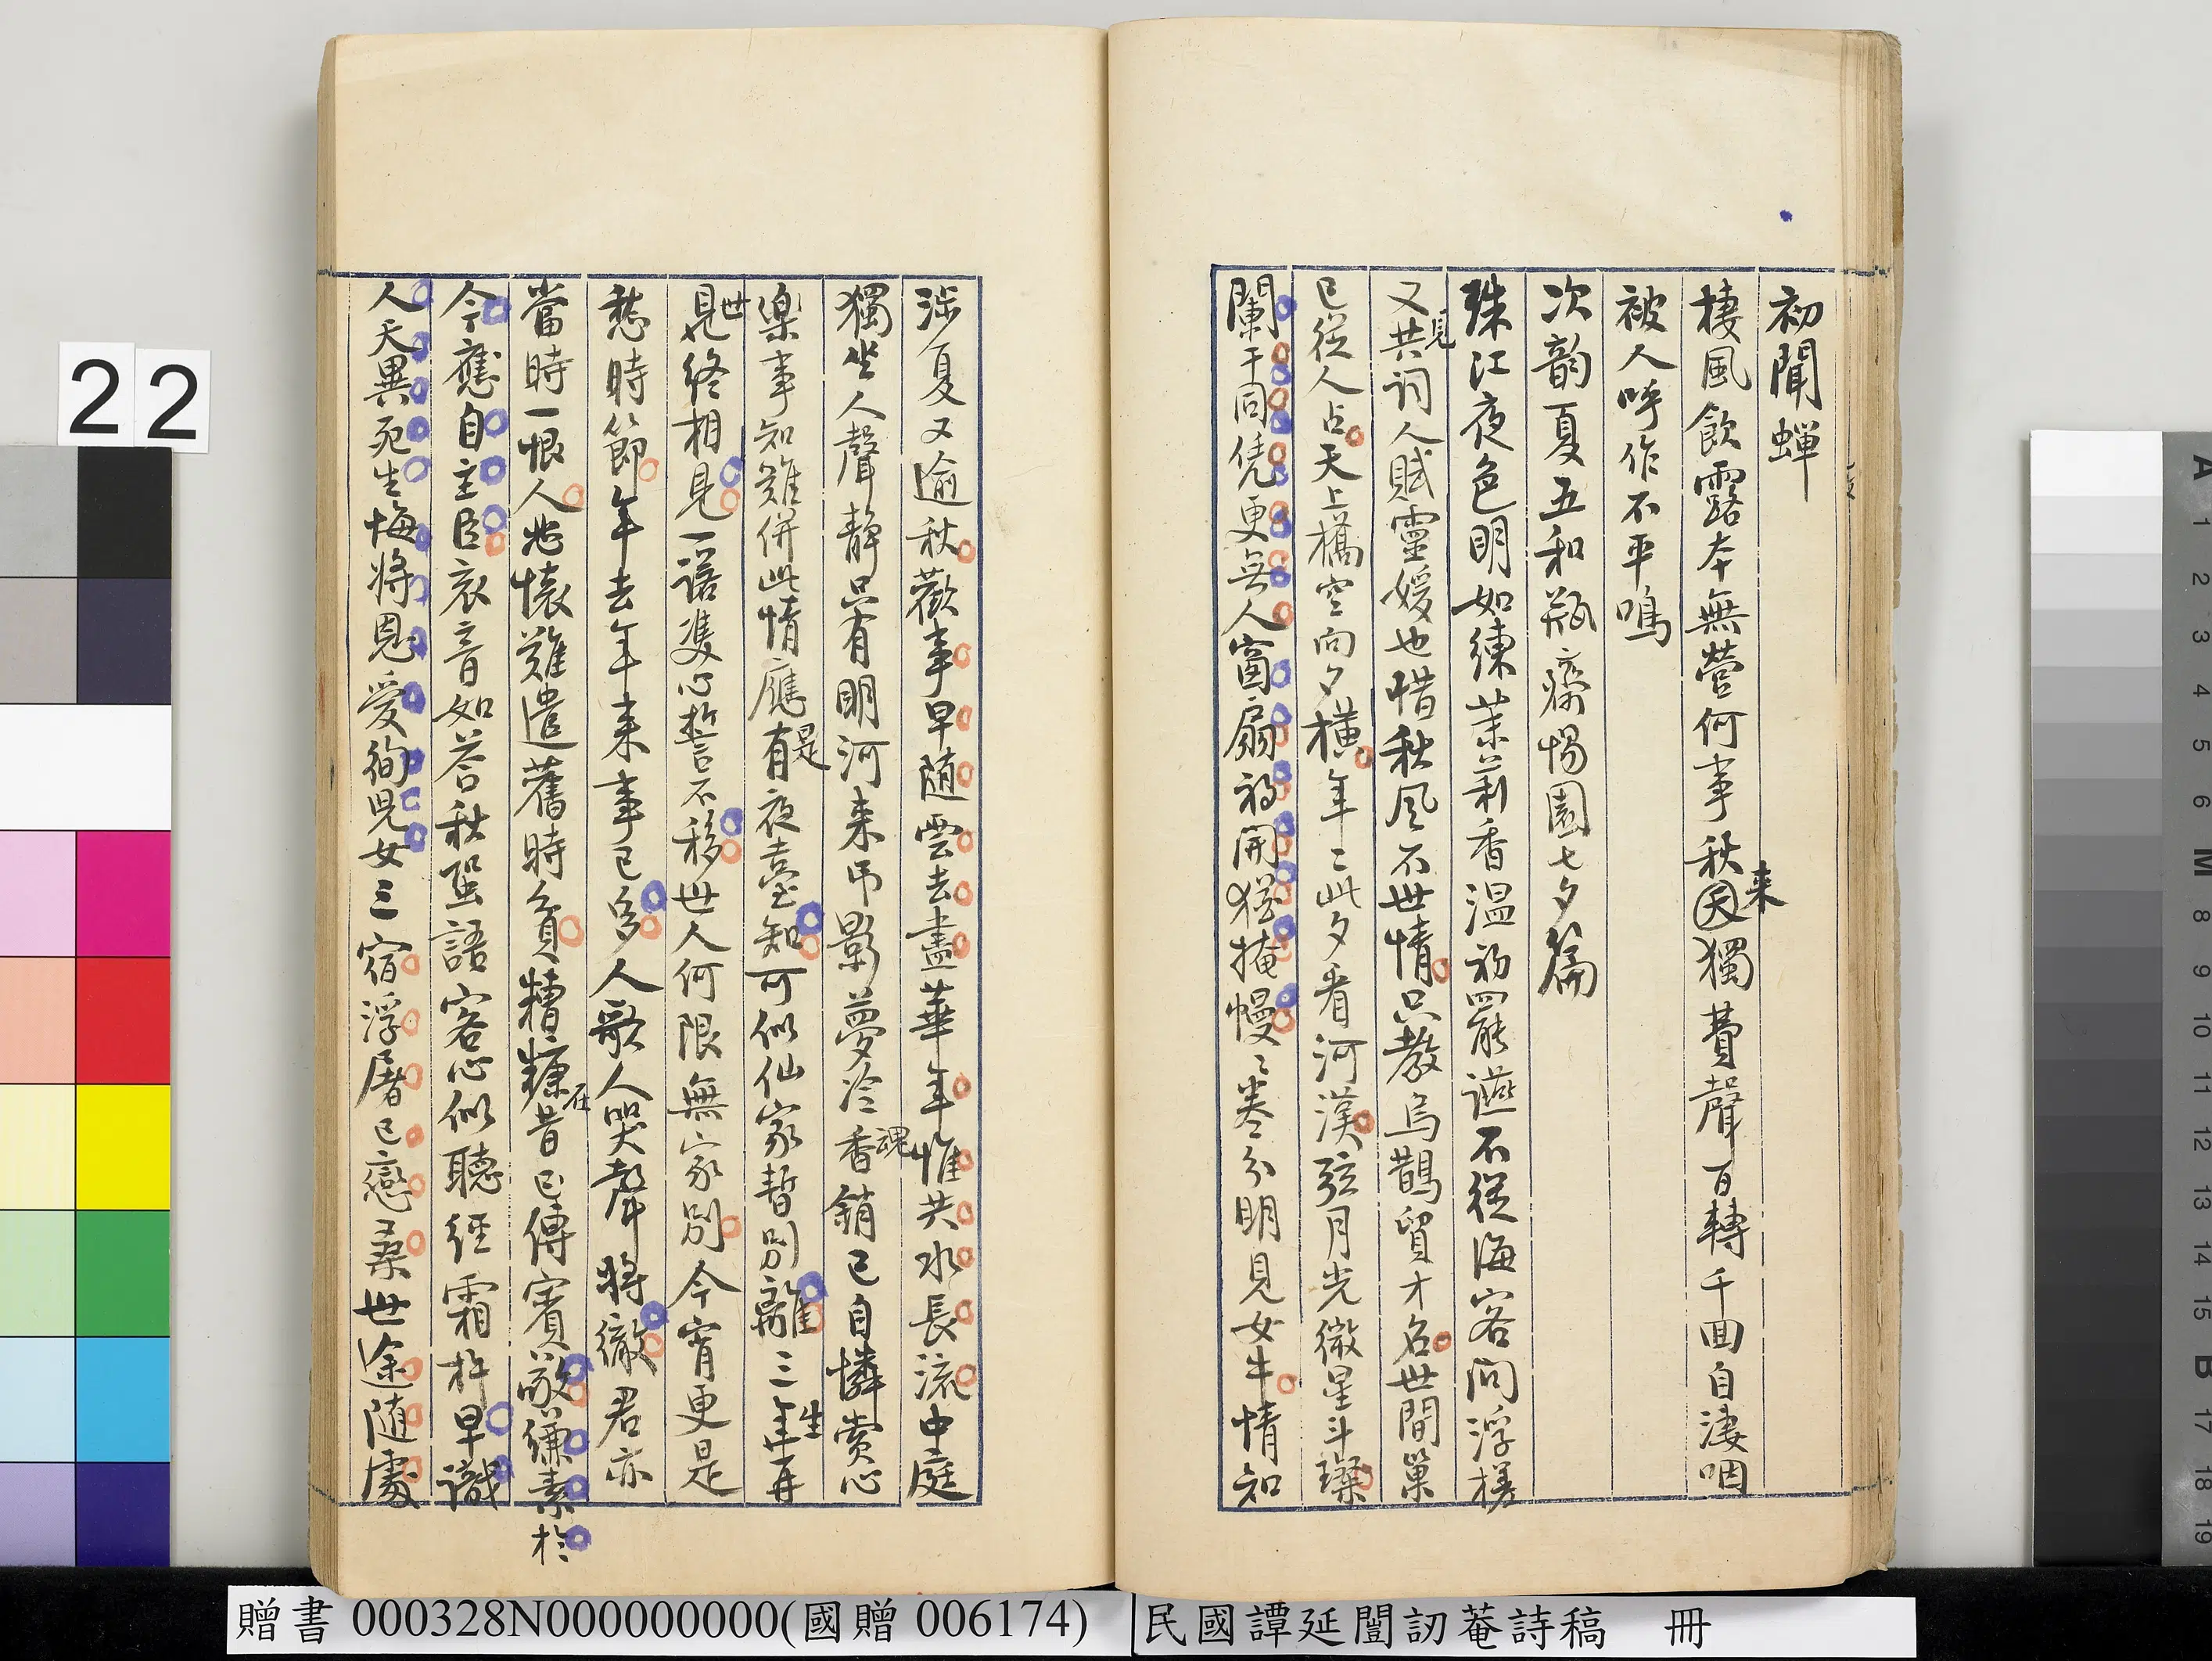 初聞蟬
棲風飲露本無營何事秋天來獨費聲百轉千回自淒咽
被人呼作不平鳴
次韵夏五和瓶齋惕園七夕篇
珠江夜色明如練茉莉香温初罷讌不從海客問浮槎
又見共詞人賦靈媛也惜秋風不世情只教烏鵲貿才名世間巢
已從人占天上橋空向夕橫年〻此夕看河漢弦月光微星斗燦
闌干同凭更無人窗扇初開猶掩幔〻卷分明見女牛情知
涉夏又逾秋歡事早隨雲去盡華年惟共水長流中庭
獨坐人聲靜只有明河來弔影夢冷香魂銷已自憐賞心
樂事知難併此情應有是夜臺知可似仙家暫別離三年生再
見世終相見一諾雙心誓不移世人何限無家別今宵更是
愁時節年去年來事已多人歌人哭聲將徹君亦
當時一恨人悲懷難遣舊時貧糟糠在昔已傳賓敬縑素於
今應自主臣哀音如答秋蛩語客心似聽經霜杵早識
人天異死生悔將恩愛徇兒女三宿浮屠已戀桑世途隨處
22
贈書 000328N000000000(國贈 006174)
民國譚延闓訒菴詩稿 冊